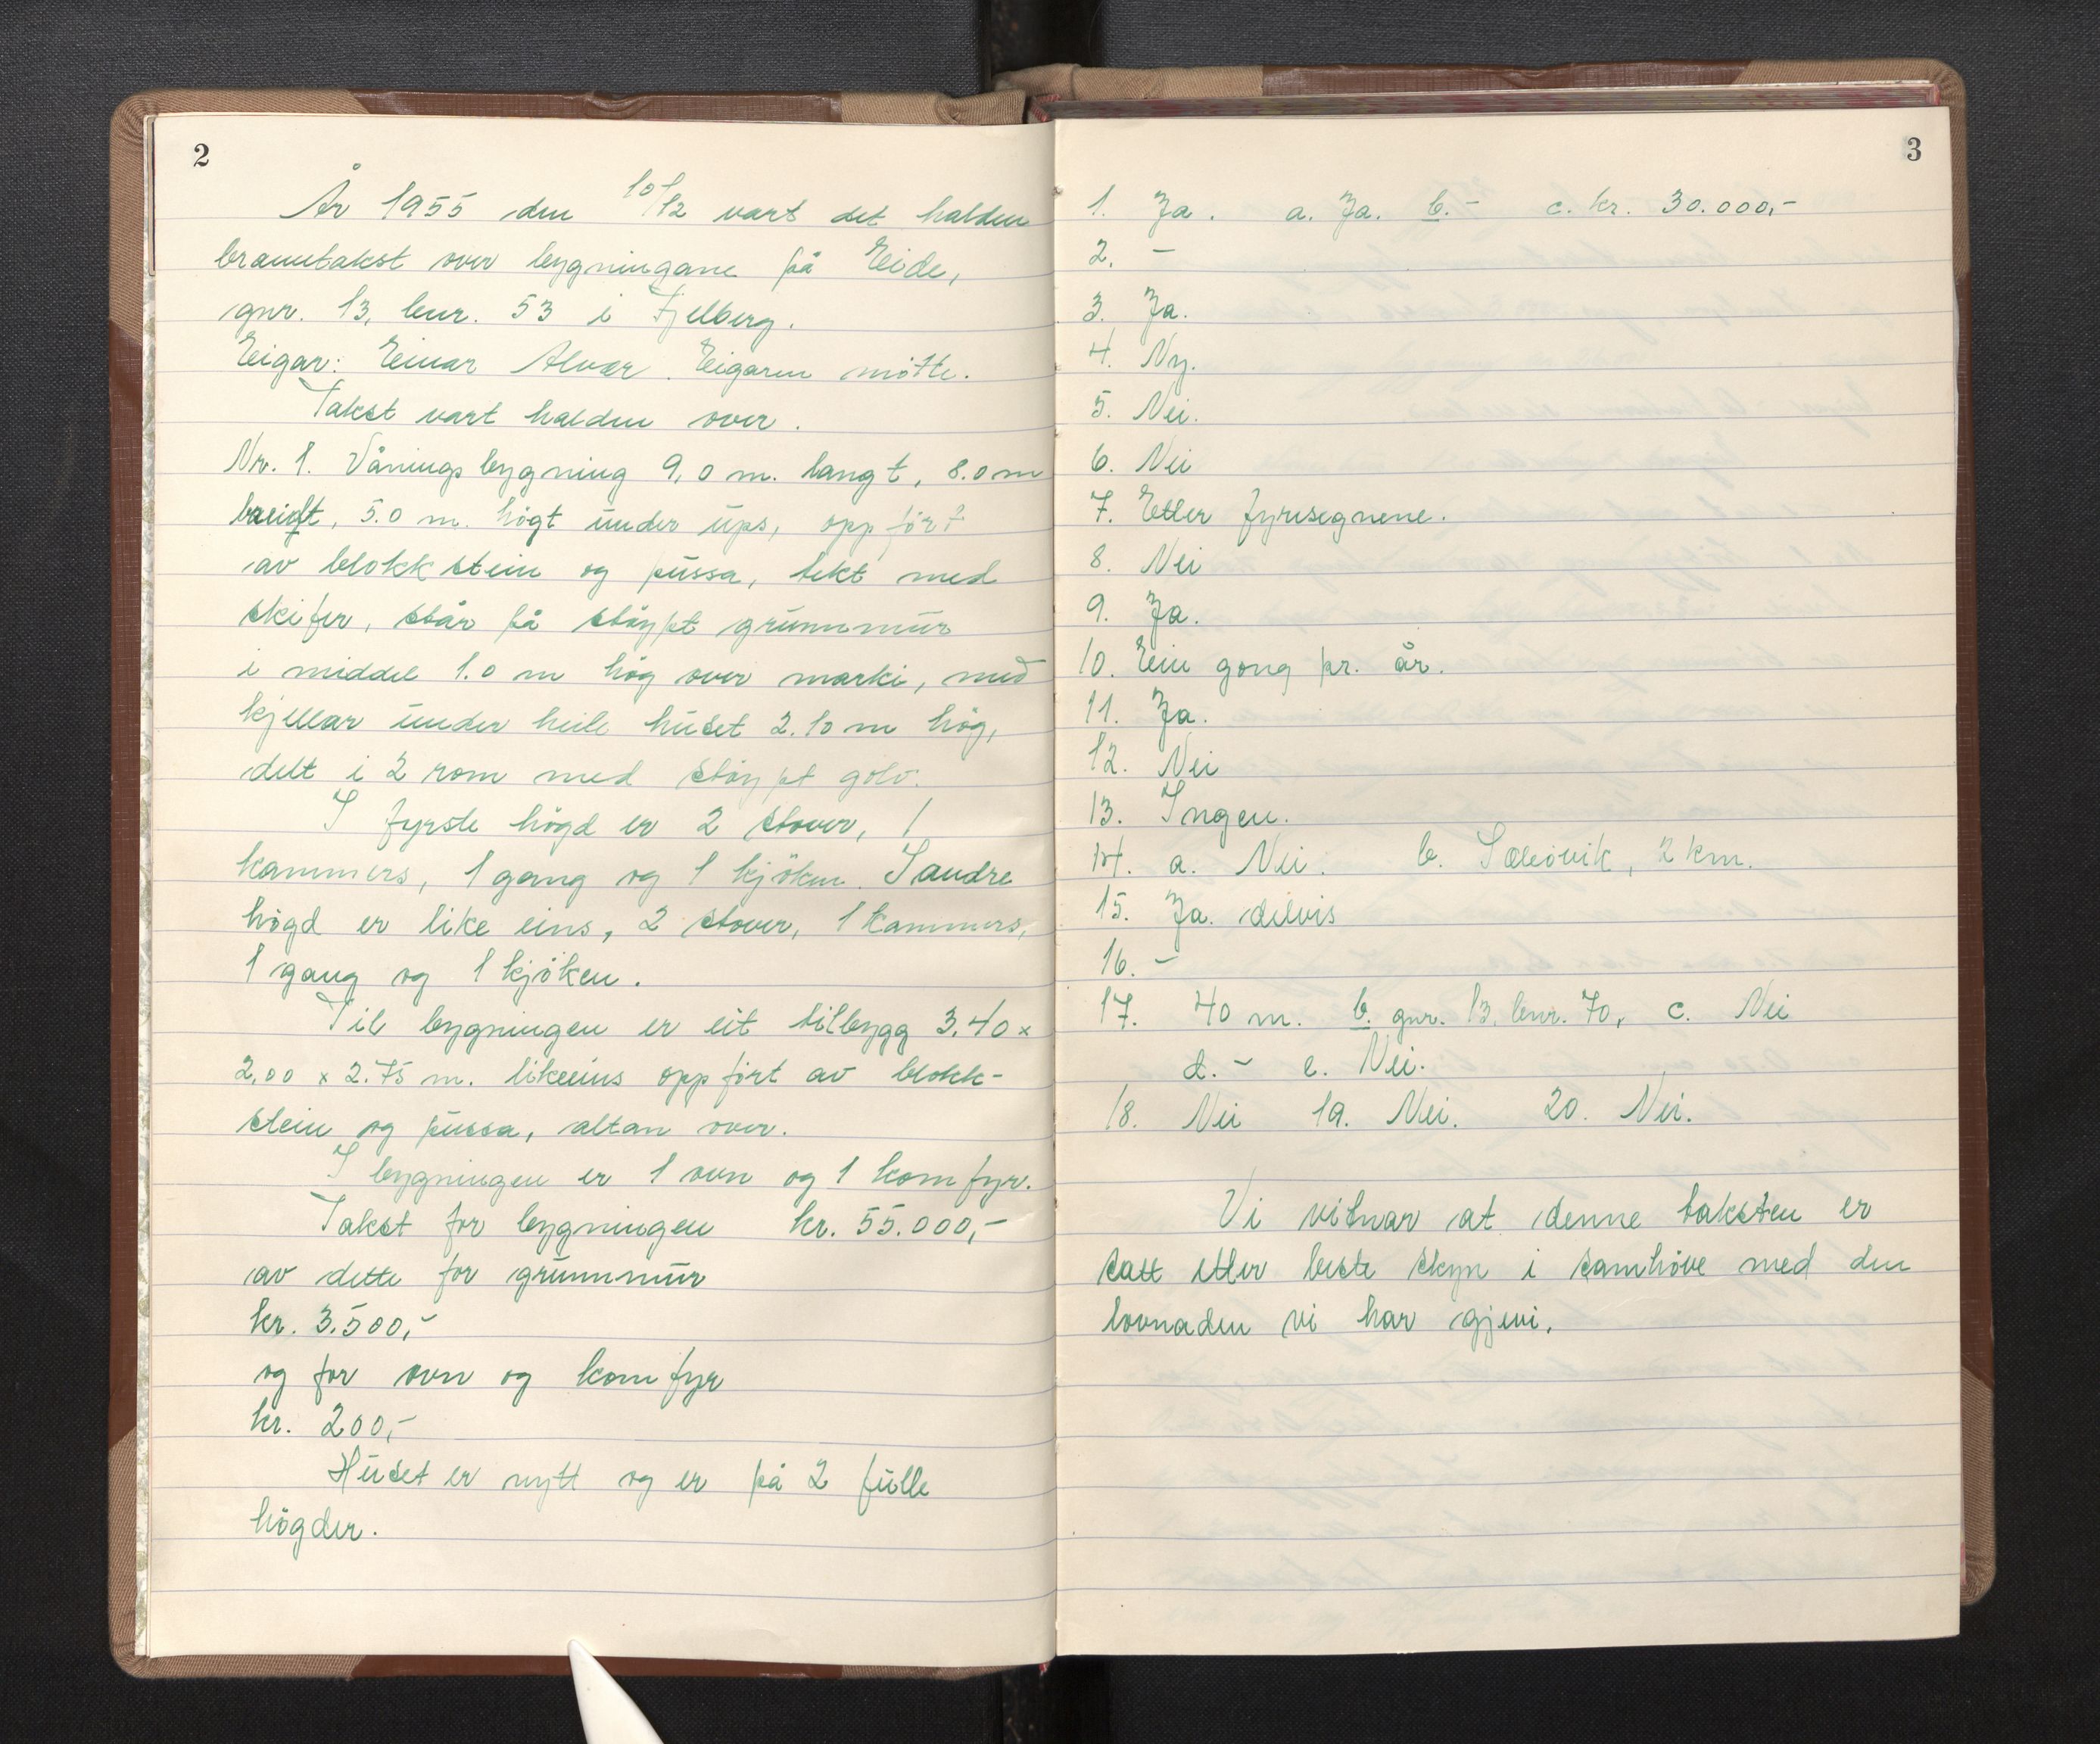 2
År 1955 den 10/12 vart det halden
branntakst over bygningane på Eide,
gnr. 13, bnr. 53 i Fjelberg.
Eigar: Einar Alvær. Eigaren mötte.
Takst vart halden over.
Nr. 1. Våningsbygning 9,0 m. langt, 8.0 m
breidt, 5.0 m. högt under ups, oppfört
av blokkstein og pussa, tekt med
skifer, står på stöypt grunnmur
i middel 1.0 m hög over marki, med
kjellar under heile huset 2.10 m hög,
delt i 2 rom med stöypt golv.
I fyrste högd er 2 stover, 1
kammers, 1 gang og 1 kjöken. I andre
högd er like eins, 2 stover, 1 kammers,
1 gang og 1 kjöken.
Til bygningen er eit tilbygg 3.40 x
2,00 x 2.75 m. likeeins oppfört av blokk-
stein og pussa, altan over.
I bygningen er 1 ovn og 1 komfyr.
Takst for bygningen kr. 55.000,-
av dette for grunnmur
kr. 3.500,-
og for ovn og komfyr
kr. 200,-
Huset er nytt og er på 2 fulle
högder.
3
1. Ja. a. Ja. b. - c. kr. 30.000,-
2. -
3. Ja.
4. Ny.
5. Nei.
6. Nei
7. Etter fyresegnene.
8. Nei
9. Ja.
10. Ein gong pr. år.
11. Ja.
12. Nei
13. Ingen.
14. a. Nei. b. Sælevik, 2 km.
15. Ja. delvis
16. -
17. 40 m. b. gnr. 13, bnr. 70, c. Nei
d. - e. Nei.
18. Nei 19. Nei. 20. Nei.
Vi vitnar at denne taksten er
satt etter beste skyn i samhöve med den
lovnaden vi har gjevi.